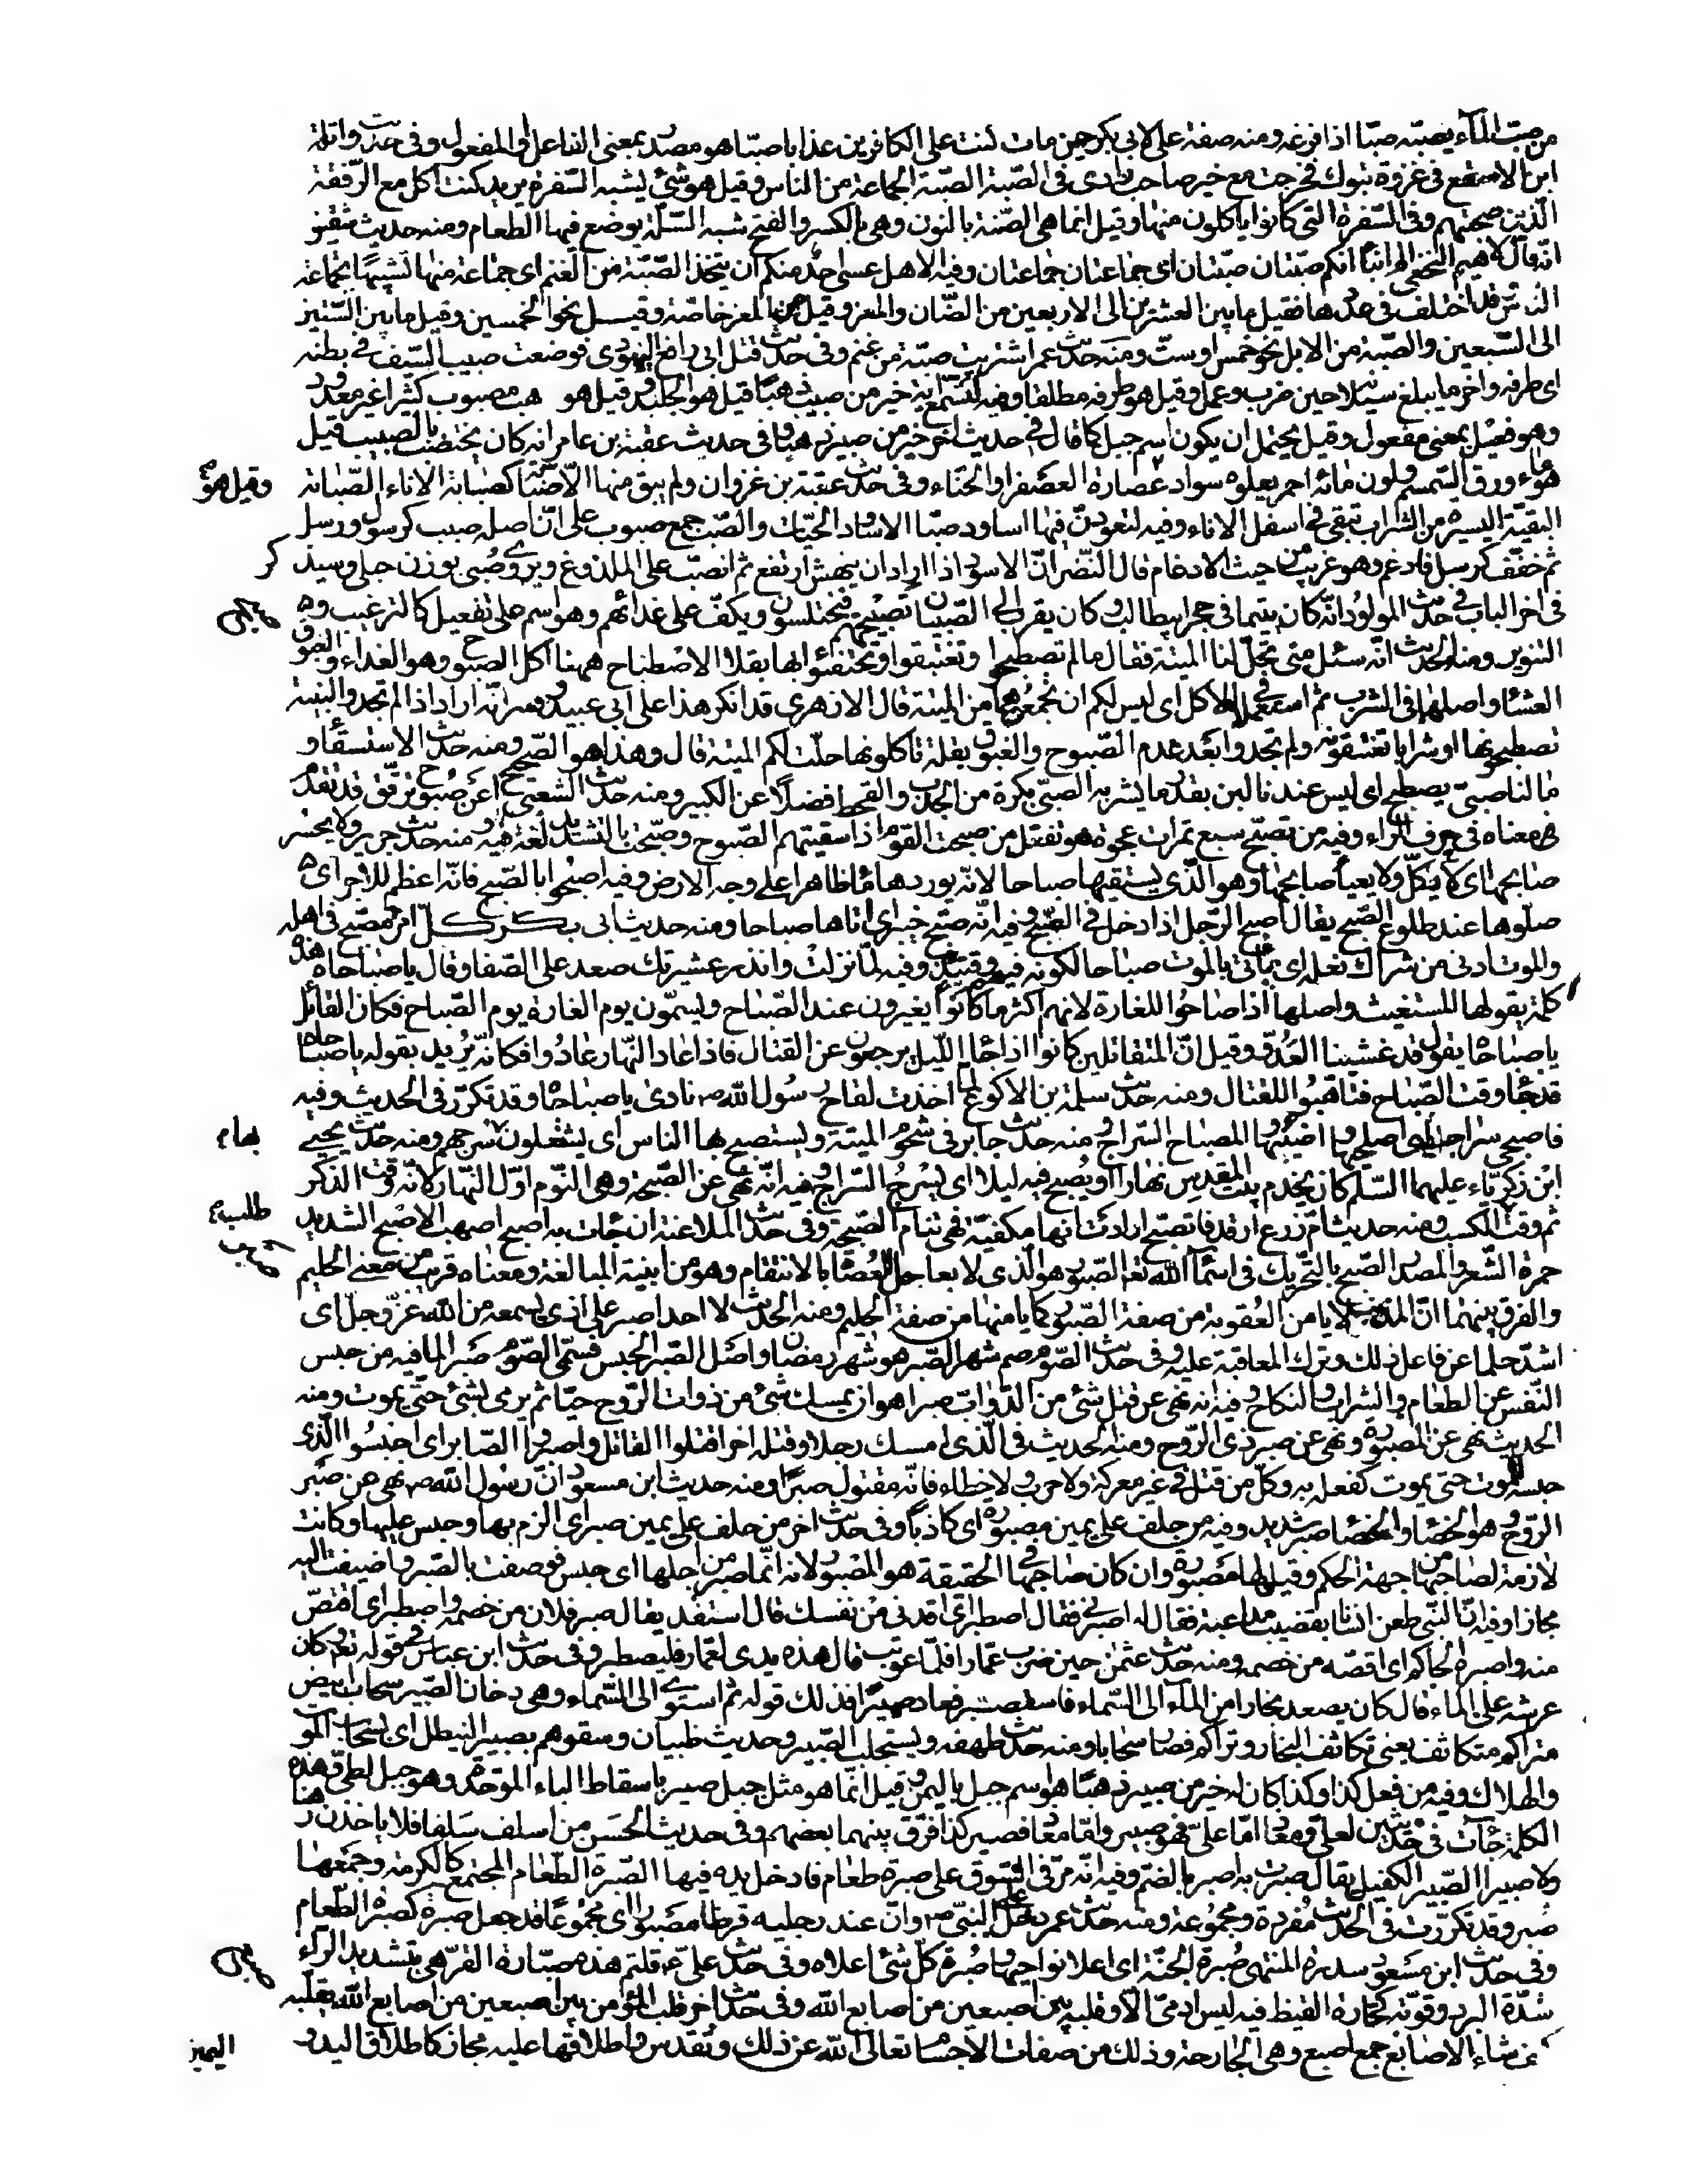 من صبّ الماء يصبّه صبّا اذا افرغه ومنه صفة علىّ لابى بكر حين مات كنت على الكافرين عذابا صبّا هو مصدر بمعنى الفاعل او المفعول وفى حديث واثلة
ابن الاسقع فى غزوة تبوك فخرجت مع خير صاحب زادى فى الصّبة الصّبة الجماعة من الناس وقيل هو شئ يشبه السّفرة يريد كنت اكل مع الرّفقة
الّذين صحبتهم وفى السّفرة التى كانوا ياكلون منها وقيل انما هى الصّنة بالنون وهى بالكسر والفتح شبه السّلّة يوضع فيها الطعام ومنه حديث شقيق
انّه قال لابراهيم النّخعى الم انبّأ انكم صبّتان صبّتان اى جماعتان جماعتان وفيه الا هل عسى احد منكم ان يتخذ الصّبّة من الغنم اى جماعة منها تشبيها بجماعة
الناس قد اختلف فى عدّها فقيل ما بين العشرين الى الاربعين من الضّان والمعز وقيل من المعز خاصّة وقيل نحو الخمسين وقيل ما بين السّتين
الى السّبعين والصّبة من الابل نحو خمس او ستّ ومنه حديث عمر اشتريت صبّة من غنم وفى حديث قتل ابى رافع اليهودى فوضعت صبيب السّيف فى بطنه
اى طرفه واخر ما يبلغ سيلانه حين ضرب وعمل وقيل هو طرفه مطلقا وفيه لتسمع اية خير من صبيب ذهبا قيل هو الجليد وقيل هو ذهب مصبوب كثيرا غير معدود
وهو فعيل بمعنى مفعول وقيل يحتمل ان يكون اسم جبل كما قال فى حديث اخر خير من صبير ذهبا وفى حديث عقبة بن عامر انه كان يختضب بالصبيب قيل
هو ماء ورق السّمسم ولون مائه احمر يعلوه سواد عصارة العصفر او الحنّاء وفى حديث عقبة بن غزوان ولم يبق منها الا صبابة كصبابة الاناء الصّبابة
وقيل هو
البقيّة اليسيرة من الشراب تبقى فى اسفل الاناء وفيه لتعودنّ فيها اساود صبّا الاساود الحيّات والصّبّ جمع صبوب على انّ اصله صبب كرسول ورسل
ثم خفّف كرسل فادغم وهو غريب من حيث الادغام قال النّضر انّ الاسود اذا اراد ان ينهش ارتفع ثم انصبّ على الملدوغ ويروى صُبّى بوزن حبلى وسيذكر
فى اخر الباب فى حديث المولود انّه كان يتيما فى حجر ابيطالب وكان يقرب الى الصّبيان تصبيحهم فيختلسون ويكفّ على غدائهم وهو اسم على تفعيل كالترغيب و
التنوير ومنه الحديث انّه سئل متى تحلّ لنا الميتة فقال ما لم تصطبحوا وتغتبقوا او تحتفئوا بها بقلا الاصطباح ههنا اكل الصّبوح وهو الغداء والغبوق
العشاء واصلهما فى الشرب ثم استعملا فى الاكل اى ليس لكم ان تجمعوهما من الميتة قال الازهرى قد انكر هذا على ابى عبيد وفسر انّه اراد اذا لم تجدوا لبنيّة
تصطبحونها او شرابا تغتبقونه ولم تجدوا بعد عدم الصّبوح والغبوق بقلة تاكلونها حلّت لكم الميتة قال وهذا هو الصّحيح ومنه حديث الاستسقاء و
ما لنا صبىّ يصطبح اى ليس عندنا لبن بقدر ما يشربه الصبّى بكرة من الجدب والقحط فضلا عن الكبير ومنه حديث الشعبى اعَن صبوح ترقّق قد تقدّم
معناه فى حرف الراء وفيه من تصبّح سبع تمرات عجوة هو تفعّل من صبحت القوم اذا سقيتهم الصّبوح وصبّحت بالتشديد لغة فيه ومنه حديث جرير ولا يحسر
صابحها اى لا يكلّ ولا يعيا صابحها وهو الّذى يسقيها صباحا لانّه يوردها ماء ظاهرا على وجه الارض وفيه اصبحوا بالصّبح فانّه اعظم للاجر اى
صلّوها عند طلوع الصّبح يقال اصبح الرّجل اذا دخل فى الصّبح وفيه انّه صبّح خيبر اى اتاها صباحا ومنه حديث ابى بكر كلّ امرئ مصبّح فى اهله
والموت ادنى من شراك نعله اى ياتى بالموت صباحا لكونه فيهم وقتئذ وفيه لمّا نزلت وانذر عشيرتك صعد على الصّفا وقال يا صباحاه هذه
كلمة يقولها المستغيث واصلها اذا صاحوا للغارة لانهم اكثر ما كانوا يغيرون عند الصّباح ويسمّون يوم الغارة يوم الصّباح فكان القائل
يا صباحاه يقول قد غشينا العدوّ وقيل انّ المتقاتلين كانوا اذا جاء الليل يرجعون عن القتال فاذا عاد النّهار عادوا فكانّه يريد بقوله يا صباحاه
قد جاء وقت الصّباح فتاهّبوا للقتال ومنه حديث سلمة بن الاكوع لما اخذت لقاح رسول الله ص نادى يا صباحاه وقد تكرّر فى الحديث وفيه
فاصبحى سراجك اى اصلحيها واضيئيها والمصباح السّراج ومنه حديث جابر فى شحوم الميتة ويستصبح بها الناس اى يشعلون سرجهم ومنه حديث يحيى
بها م
ابن زكريّاء عليهما السّلم كان يخدم بيت المقدس نهارا ويُصبح فيه ليلا اى يُسْرِجُ السّراج وفيه انّه نهى عن الصّبحة وهى النّوم اوّل النّهار لانّه وقت الذكر
ثم وقت الكسب ومنه حديث امّ زرع ارقد فاتصبّح ارادت انها مكفيّة فهى تنام الصّبحة وفى حديث الملاعنة ان جاءت به اصبح اصهب الاصبح الشديد
طلب
حمرة الشّعر والمصدر الصّبح بالتّحريك فى اسماء الله تعالى الصّبور هو الّذى لا يعاجل العُصاة بالانتقام وهو من ابنية المبالغة ومعناه قريب من معنى الحليم
والفرق بينهما انّ المذنب لا يامن العُقوبة من صفة الصّبور كما يامنها من صفة الحليم ومنه الحديث لا احد اصبر على اذى يسمعه من الله عزّ وجلّ اى
اشدّ حلما عن فاعل ذلك وترك المعاقبة عليه وفى حديث الصّوم صم شهر الصّبر هو شهر رمضان واصل الصّبر الحبس فسمّى الصّوم صبرا لما فيه من حبس
النّفس عن الطعام والشراب والنكاح وفيه انه نهى عن قتل شئ من الدّوابّ صبرا هو ان يمسك شئ من ذوات الرّوح حيّا ثم يرمى بشئ حتّى يموت ومنه
الحديث نهى عن المصبورة ونهى عن صبر ذى الرّوح ومنه الحديث فى الّذى امسك رجلا وقتله اخر اقتلوا القاتل واصبروا الصّابر اى احبسوا الّذى
حبسه للموت حتى يموت كفعله به وكلّ من قتل فى غير معركة ولا حرب ولا خطاء فانّه مقتول صبرا ومنه حديث ابن مسعود انّ رسول الله ص نهى عن صبر
الرّوح وهو الخصاء والخصاء صبر شديد وفيه من حلف على يمين مصبورة اى كاذبا وفى حديث اخر من حلف على يمين صبر اى الزم بها وحبس عليها وكانت
لازمة لصاحبها من جهة الحكم وقيل لها مصبورة وان كان صاحبها فى الحقيقة هو المصبور لانه انّما صبر من اجلها اى حبس فوصفت بالصّبر واضيفت اليه
مجازا وفيه انّ النّبى طعن انسانا بقضيب مداعبة فقال له اصبرنى فقال اصطبر اى اقدنى من نفسك قال استقد يقال صبر فلان من خصمه واصطبر اى اقتصّ
منه واصبره الحاكم اى اقصّه من خصمه ومنه حديث عثمن حين ضرب عمّارا فلمّا عوتب قال هذه يدى لعمّار فليصطبر وفى حديث ابن عباس فى قوله تعالى وكان
عرشه على الماء قال كان يصعد بخارا من الماء الى السّماء فاستصبر فعاد صبيرا فذلك قوله ثم استوى الى السّماء وهى دخان الصّبير سحاب ابيض
متراكم متكاثف يعنى تكاثف البخار وتراكم فصار سحابا ومنه حديث طهفة ويستحلب الصّبير وحديث ظبيان وسقوهم بصبير النيطل اى بسحاب الموت
والهلاك وفيه من فعل كذا وكذا كان له خير من صبير ذهبا هو اسم جبل باليمن وقيل انّما هو مثل جبل صير باسقاط الباء الموحّدة وهو جبل لطىّ وهذه
الكلمة جاءت فى حديثين لعلىّ ومعاذ امّا علىّ فهو صبير وامّا معاذ فصير كذا فرّق بينهما بعضهم وفى حديث الحسن من اسلف سلفا فلا ياخذن رهنا
ولا صبيرا الصّبير الكفيل يقال صبرت به اصبر بالضمّ وفيه انّه مرّ فى السّوق على صبرة طعام فادخل يده فيها الصّبرة الطّعام المجتمع كالكومة وجمعها
صُبر وقد تكرّرت فى الحديث مُفردة ومجموعة ومنه حديث عمر دخل على النبىّ ص وانّ عند رجليه قرظا مصبورا اى مجموعا قد جعل صبرة كصبرة الطّعام
وفى حديث ابن مسعود سدرة المنتهى صُبرة الجنّة اى اعلا نواحيها وصُبرة كلّ شئ اعلاه وفى حديث علىّ ع قلتم هذه صبّارة القرّ هى بتشديد الراء
شدّة البرد وقوّته كحمارّة القيظ فيه ليس ادمىّ الاّ وقلبه بين اصبعين من اصابع الله وفى حديث اخر قلب المؤمن بين اصبعين من اصابع الله يقلّبه
كيف شاء الاصابع جمع اصبع وهى الجارحة وذلك من صفات الاجسام تعالى الله عن ذلك وتقدس واطلاقها عليه مجاز كاطلاق اليد و
اليمين